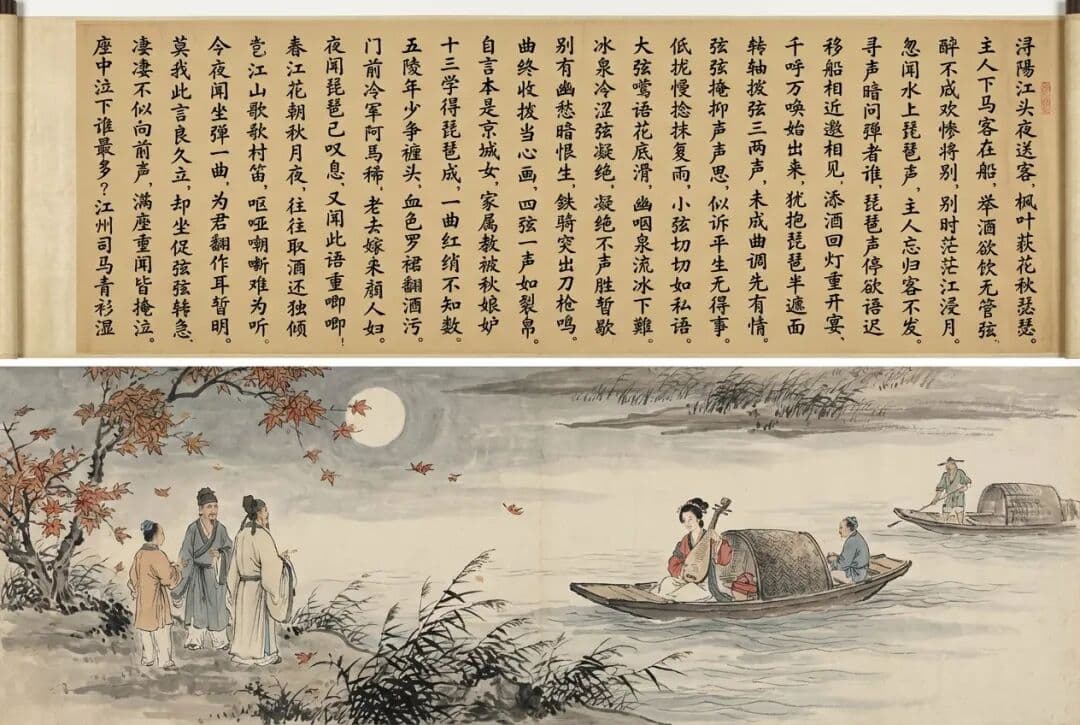 浔陽江头夜送客，枫叶荻花秋瑟瑟。
主人下马客在船，举酒欲饮无管弦。
醉不成欢惨将别，别时茫茫江浸月。
忽闻水上琵琶声，主人忘归客不发。
寻声暗问弹者谁，琵琶声停欲语迟
移船相近邀相见，添酒回灯重开宴、
千呼万唤始出来，犹抱琵琶半遮面
转轴拨弦三两声，未成曲调先有情。
弦弦掩抑声声思，似诉平生无得事。
低拢慢捻抹复雨，小弦切切如私语。
大弦莺语花底滑，幽咽泉流冰下難。
冰泉冷涩弦凝绝，凝绝不声胜暂歇
别有幽愁暗恨生，鉄骑突出刀枪鸣。
曲终收拨当心画，四弦一声如裂帛。
自言本是京城女，家属教被秋娘妒
十三学得琵琶成，一曲红绡不知数。
五陵年少争缠头，血色罗裙翻酒污。
门前冷军阿馬稀，老去嫁来顔人妇。
夜闻琵琶已叹息、又闻此语重唧唧！
春江花朝秋月夜，往往取酒还独倾
岂江山歌歌村笛，呕哑嘲哳难为听。
今夜闻坐弹一曲，为君翻作耳暂明。
莫我此言良久立，却坐促弦弦转急、
凄凄不似向前声，满座重闻皆掩泣。
座中泣下谁最多？江州司马青衫湿